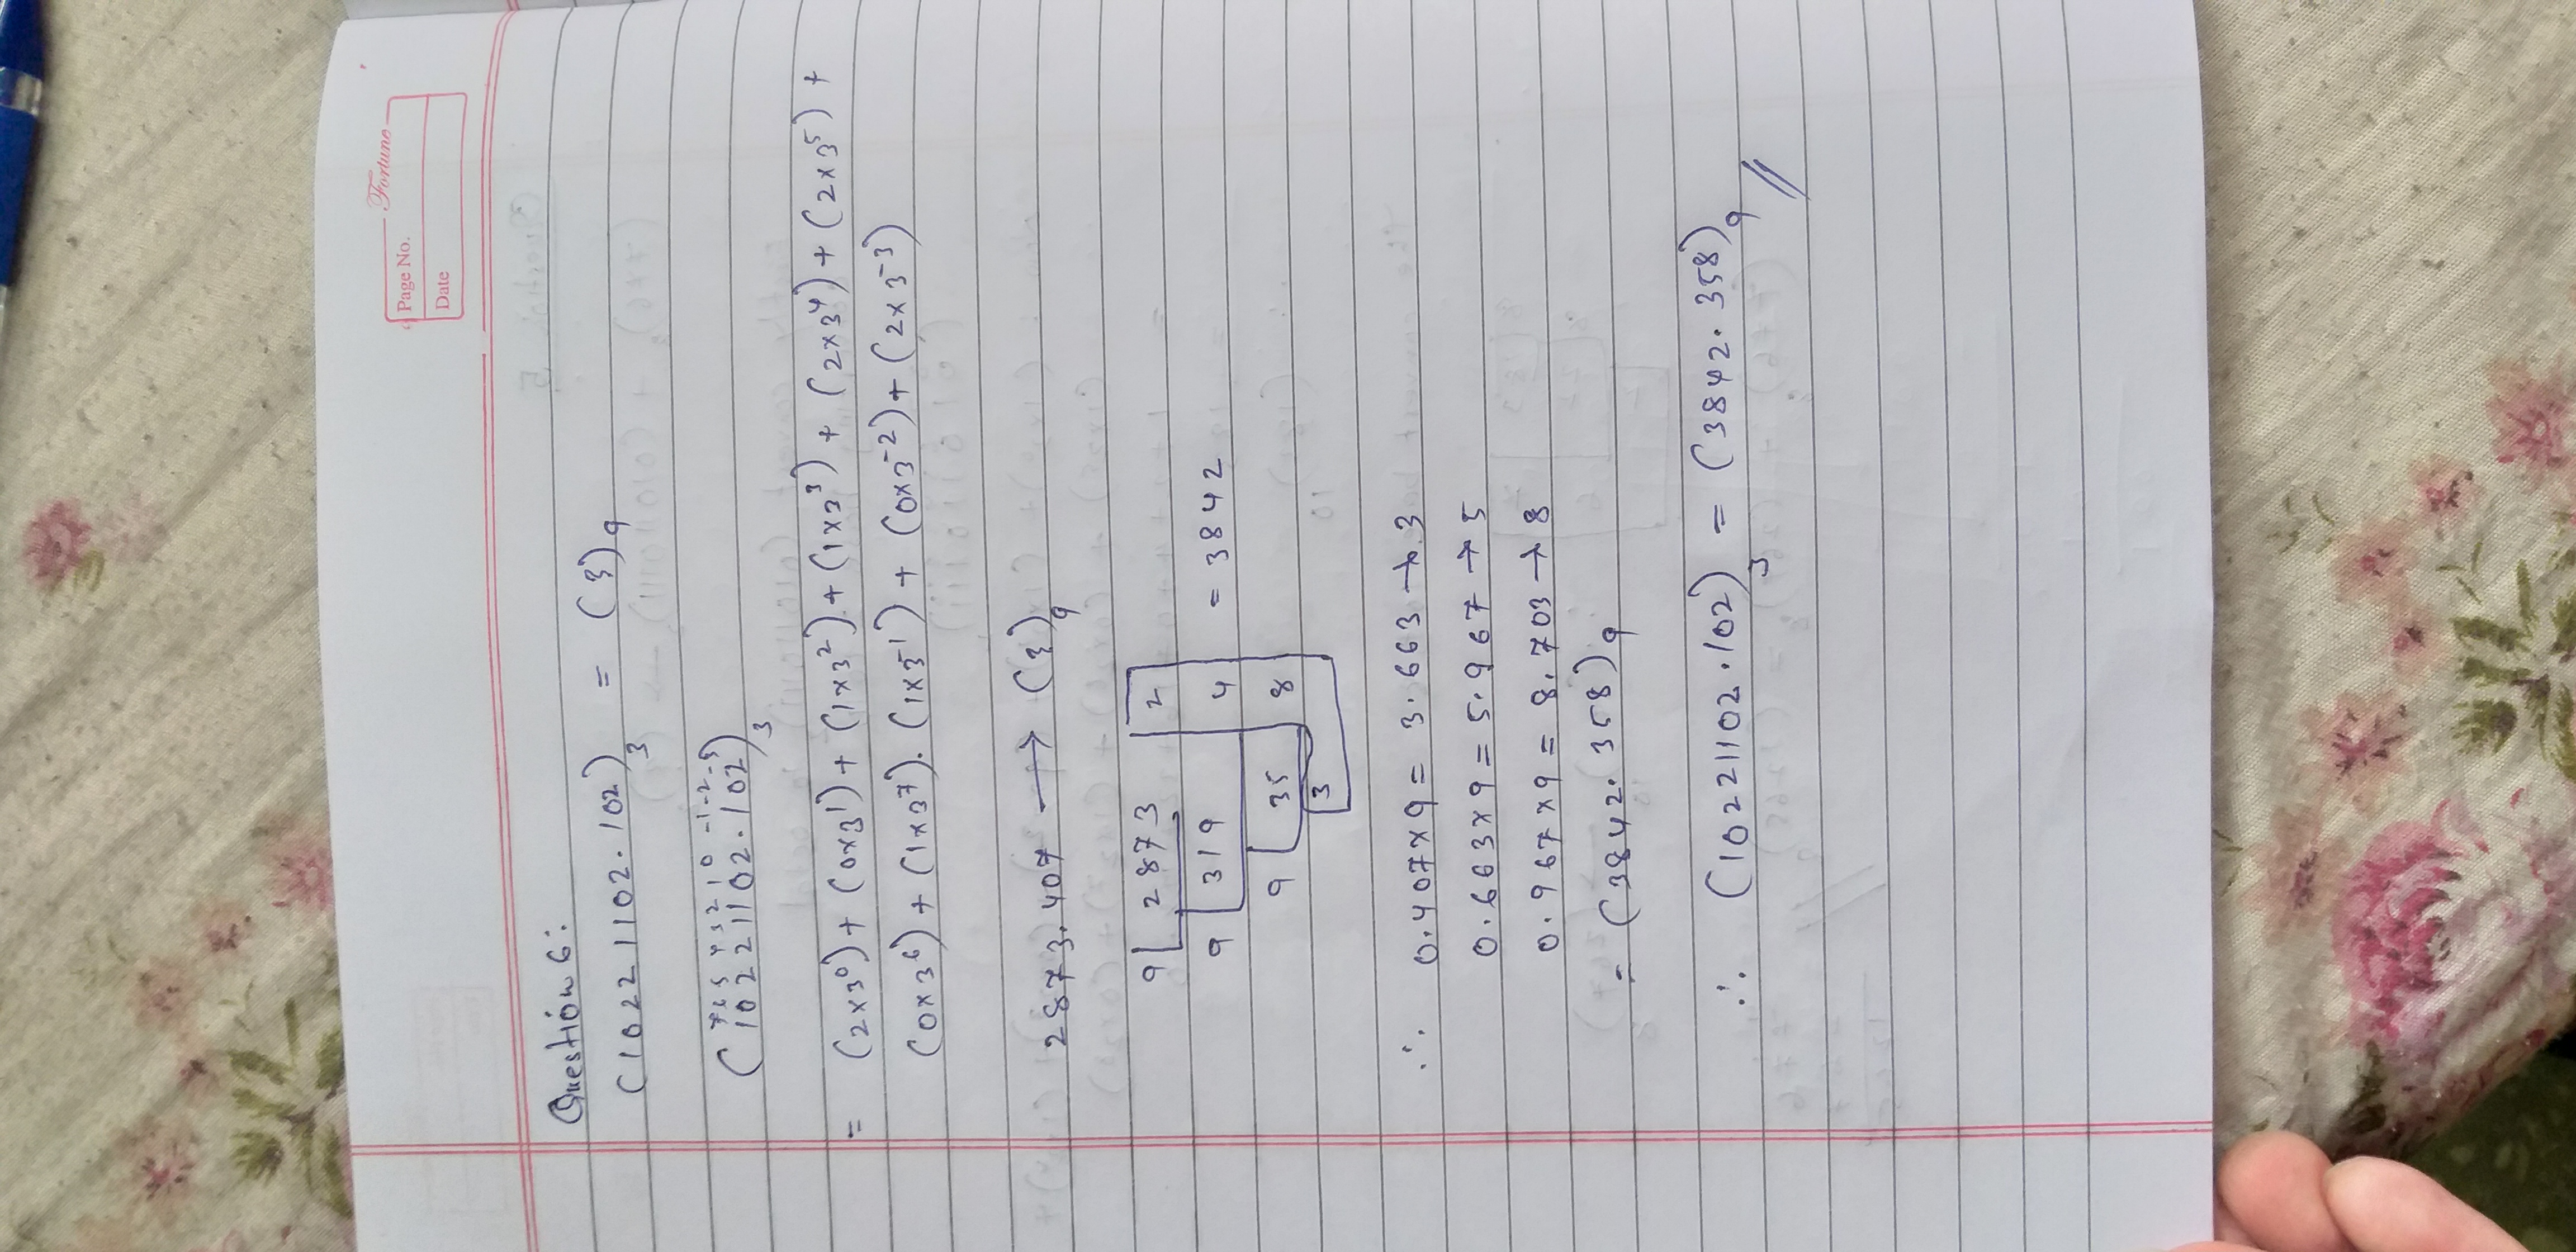 Fortune
Page No.
Date
Question 6:
(10221102.102)3 = (?)9
7 6 5 4 3 2 1 0 -1 -2 -3
(10221102.102)3
= (2x3^0) + (0x3^1) + (1x3^2) + (1x3^3) + (2x3^4) + (2x3^5) +
(0x3^6) + (1x3^7). (1x3^-1) + (0x3^-2) + (2x3^-3)
2873.407 → (?)9
9 2873 2
9 319 4 = 3842
9 35 8
3
∴ 0.407x9 = 3.663 → 3
0.663x9 = 5.967 → 5
0.967x9 = 8.703 → 8
= (3842.358)9
∴ (10221102.102)3 = (3842.358)9